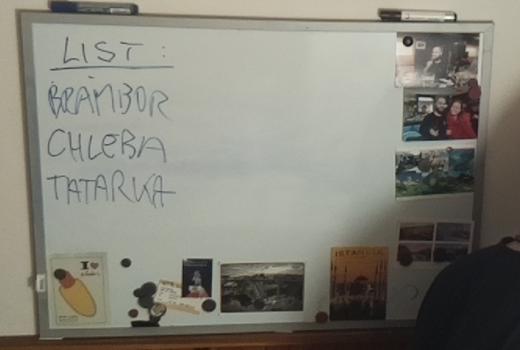 LIST:
BRAMBOR
CHLEBA
TATARKA
I
ISTANBUL